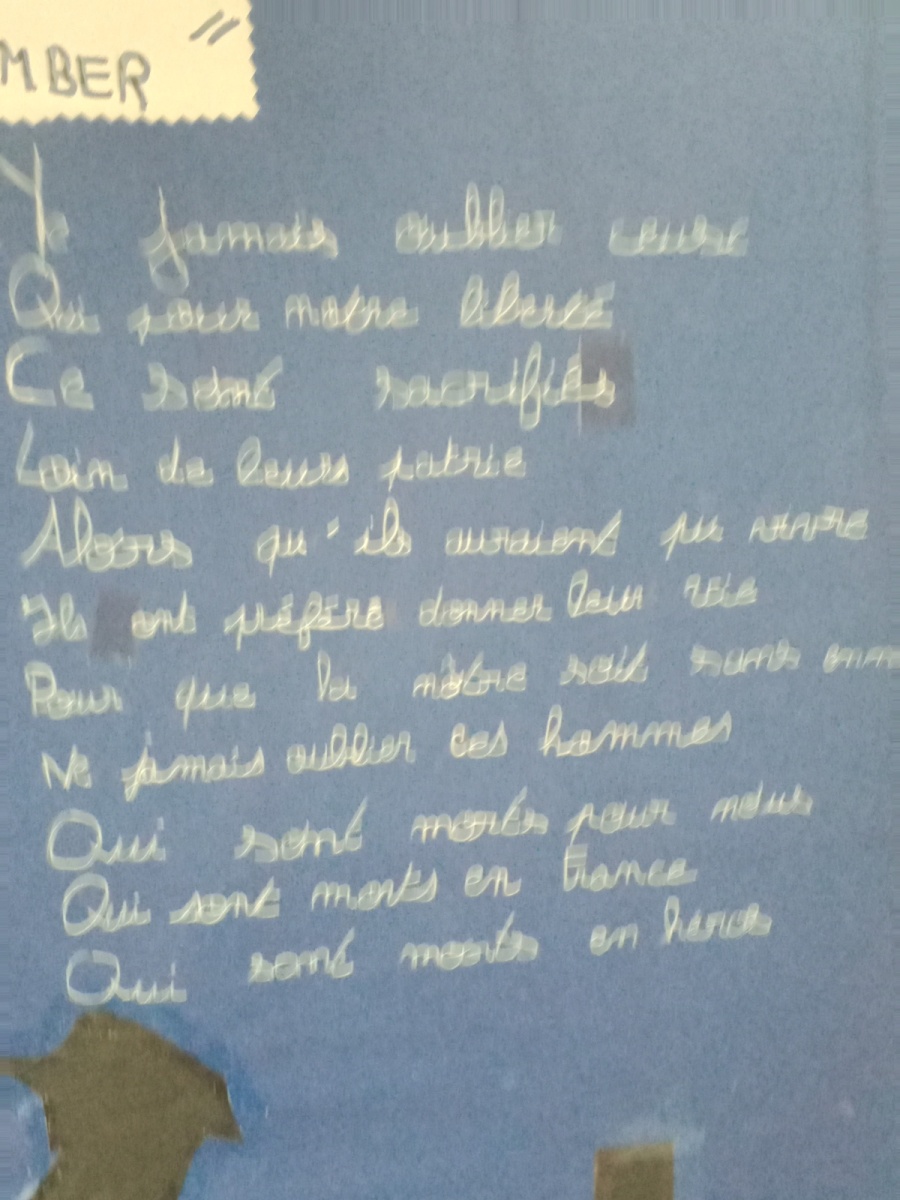 MBER "
jamais oublier ceux
Qui pour notre liberté
Ce sont sacrifiés
Loin de leurs patrie
Alors qu'ils auraient pu vivre
Ils ont préféré donner leur vie
Pour que la nôtre soit sans
Ne jamais oublier ces hommes
Qui sont morts pour nous
Qui sont morts en France
Qui sont morts en heros